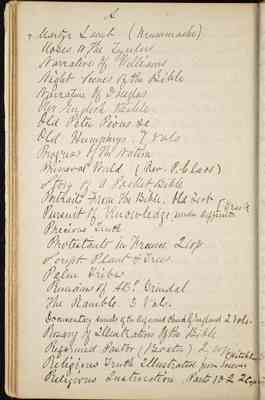 Martyr Lamb (Krummacher)
Moses & the Zealous
Narrative of Williams
Night Scenes of the Bible
Narrative of Douglas
Our English Bible
Old Peter Pious &c
Old Humphreys. 7 Vols
Progress of the Nation
Primeval World (Rev. P. Class)
Story of a Pocket Bible
Portraits From the Bible. Old Test
Pursuit of Knowledge under difficulties
Precious Truth
Protestants in France. 2 cop
Script Plant & Trees
Palm Tribes
Remains of ABp Grindal
The Ramble. 3 Vols.
Documentary Annals of the Reformed Church of England 2 Vols.
Rosary of Illustrations of the Bible
Reformed Pastor (Baxter) 2
Religious Truth Illustrated from Science
Religious Instruction. Parts 1 & 2 2 Copies